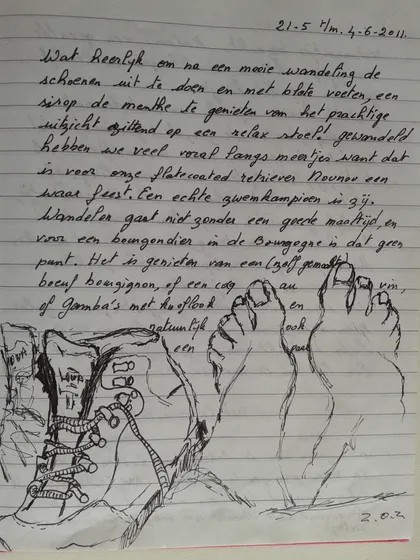 21-5 t/m. 4-6-2011.
Wat heerlijk om na een mooie wandeling de
schoenen uit te doen en met blote voeten, een
sirop de menthe te genieten van het prachtige
uitzicht zittend op een relax stoel! gewandeld
hebben we veel vooral langs meertjes want dat
is voor onze flatecoated retriever Nounou een
waar feest. Een echte zwemkampioen is zij.
Wandelen gaat niet zonder een goede maaltijd, en
voor een bourgondier in de Bourgogne is dat geen
punt. Het is genieten van een (zelf gemaakt)
boeuf bourgignon, of een coq au vin,
of Gamba's met knoflook en
natuurlijk ook
een paar
2.0.2